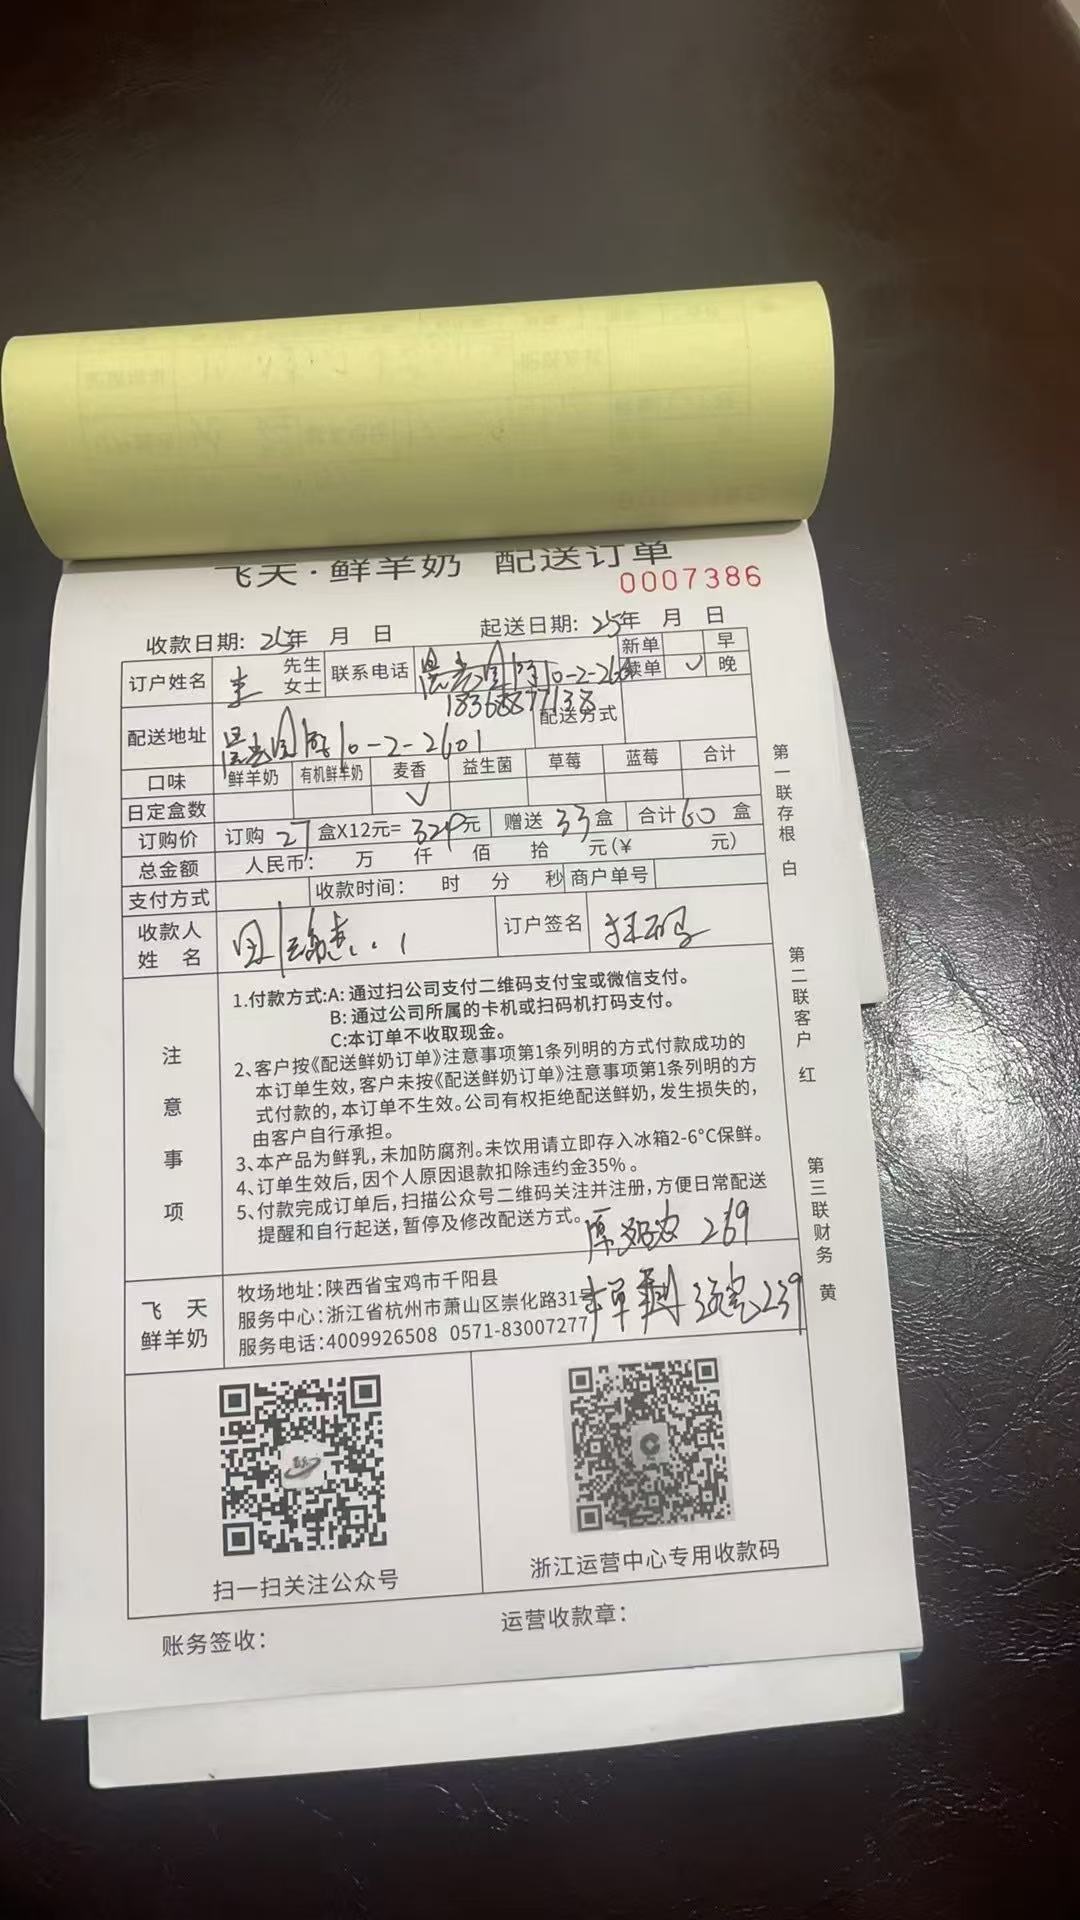 飞天·鲜羊奶 配送订单
0007386
收款日期: 25年 月 日 起送日期: 25年 月 日
订户姓名 先生 女士 联系电话 10-2-2601 新单 早
续单 ✓ 晚
18368877138
配送地址 10-2-2601 配送方式
口味 鲜羊奶 有机鲜羊奶 麦香 益生菌 草莓 蓝莓 合计
日定盒数 ✓
订购价 订购 27 盒X12元= 324元 赠送 33 盒 合计 60 盒
总金额 人民币: 万 仟 佰 拾 元(¥ 元)
支付方式 收款时间: 时 分 秒 商户单号
收款人 姓 名 订户签名 扫码
注意事项
1.付款方式:A: 通过扫公司支付二维码支付宝或微信支付。
B: 通过公司所属的卡机或扫码机打码支付。
C:本订单不收取现金。
2、客户按《配送鲜奶订单》注意事项第1条列明的方式付款成功的
本订单生效,客户未按《配送鲜奶订单》注意事项第1条列明的方
式付款的,本订单不生效。公司有权拒绝配送鲜奶,发生损失的,
由客户自行承担。
3、本产品为鲜乳,未加防腐剂。未饮用请立即存入冰箱2-6°C保鲜。
4、订单生效后,因个人原因退款扣除违约金35%。
5、付款完成订单后,扫描公众号二维码关注并注册,方便日常配送
提醒和自行起送,暂停及修改配送方式。
原 269
飞天 鲜羊奶
牧场地址:陕西省宝鸡市千阳县
服务中心:浙江省杭州市萧山区崇化路31号
服务电话:4009926508 0571-83007277
239
扫一扫关注公众号
浙江运营中心专用收款码
账务签收:
运营收款章:
第一联存根 白
第二联客户 红
第三联财务 黄